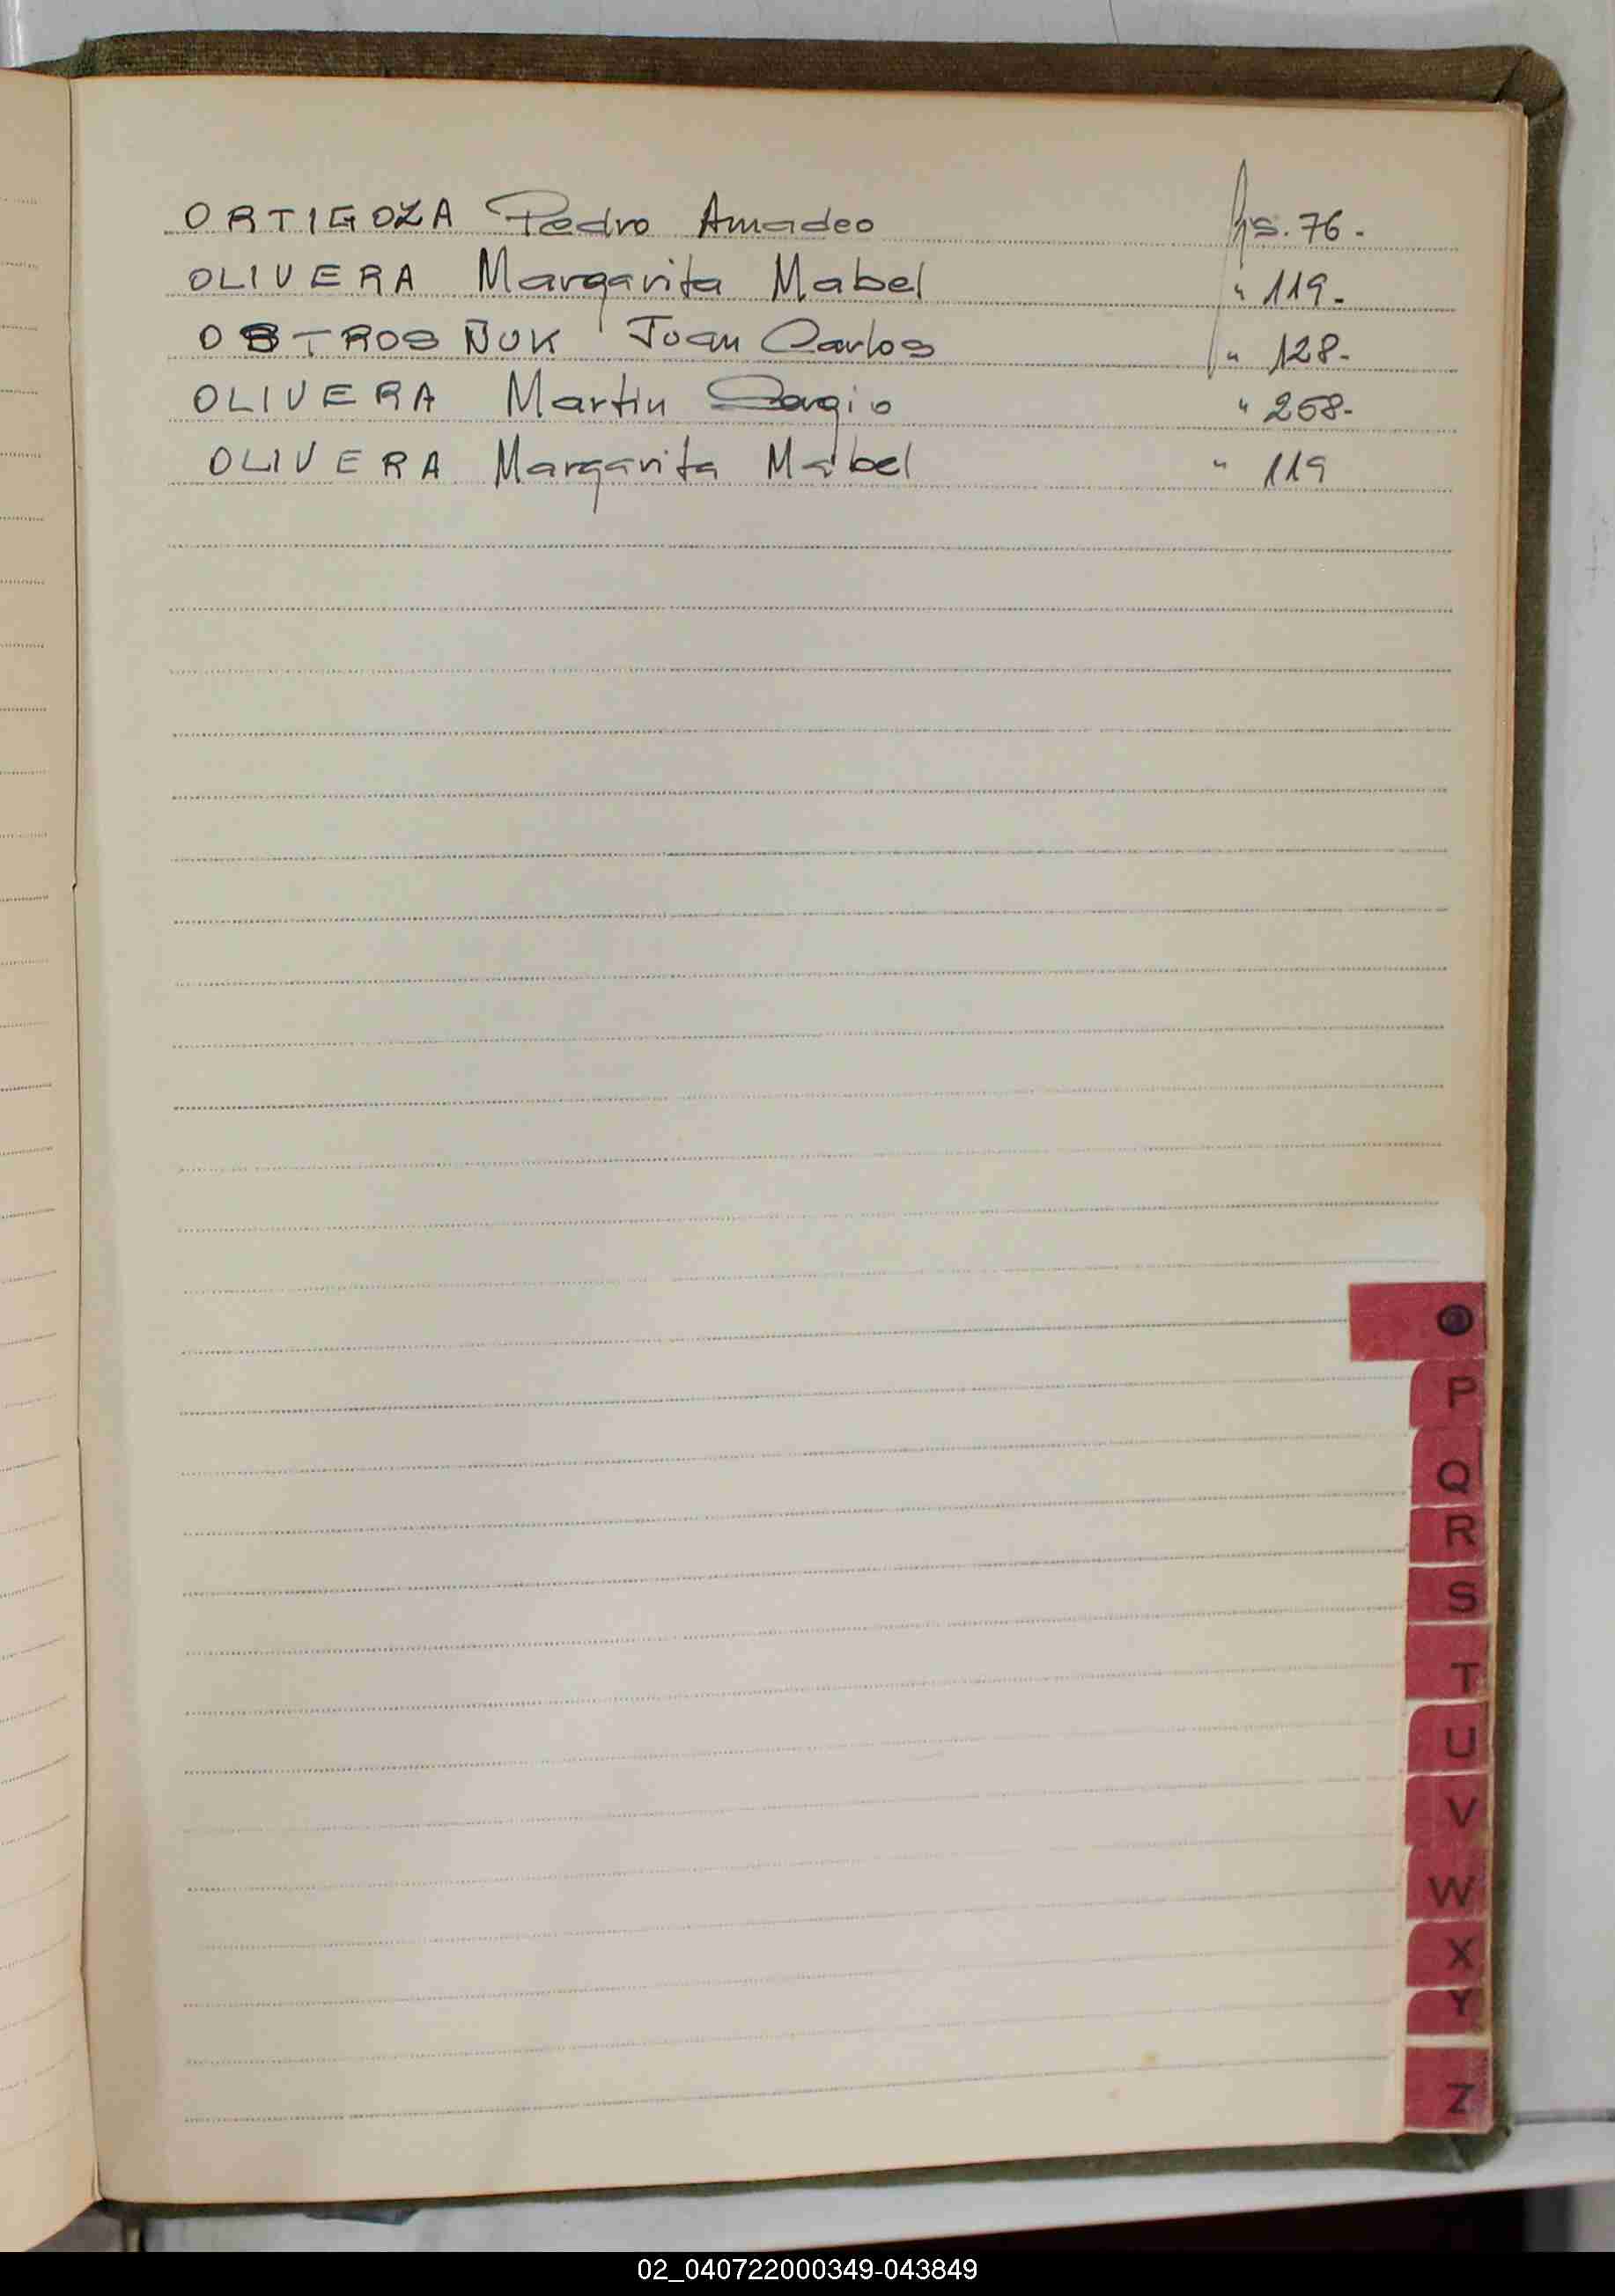 ORTIGOZA Pedro Amadeo fjs. 76.-
OLIVERA Margarita Mabel " 119.-
OSTROSÑUK Juan Carlos " 128.-
OLIVERA Martin Sergio " 258.-
OLIVERA Margarita Mabel " 119
O
P
Q
R
S
T
U
V
W
X
Y
Z
02_040722000349-043849